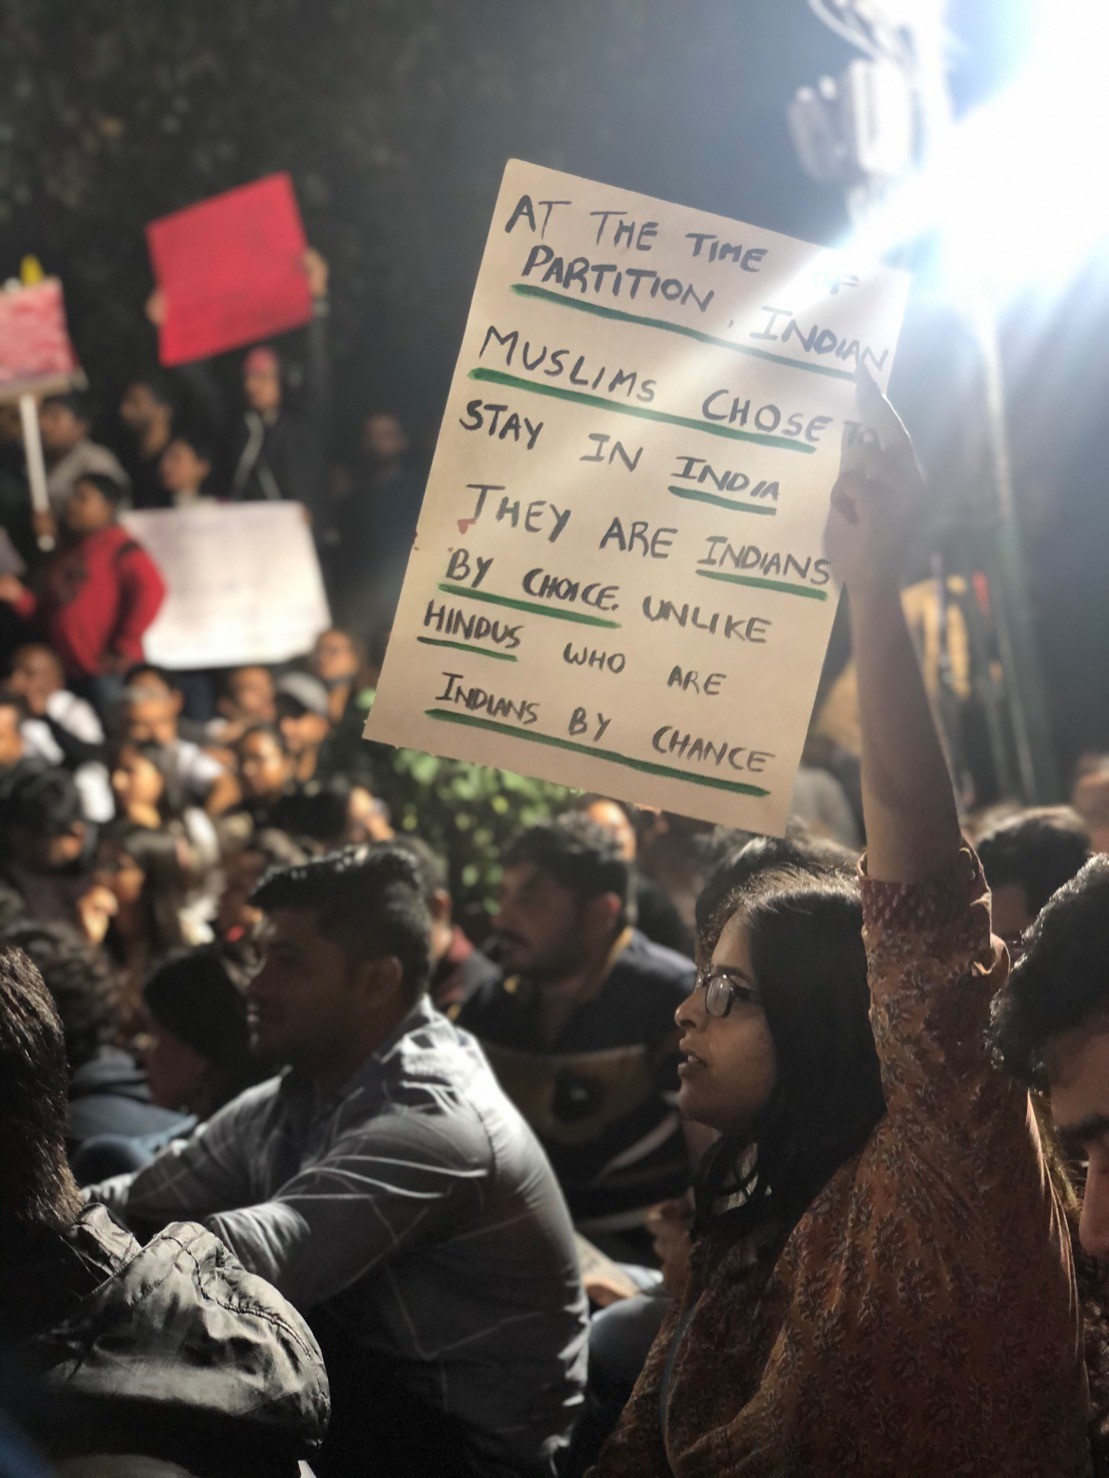 AT THE TIME OF
PARTITION, INDIAN
MUSLIMS CHOSE TO
STAY IN INDIA
THEY ARE INDIANS
BY CHOICE. UNLIKE
HINDUS WHO ARE
INDIANS BY CHANCE